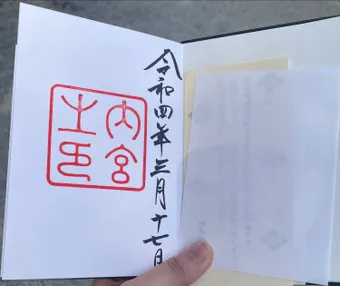 令和四年三月十七日
内宮
之印